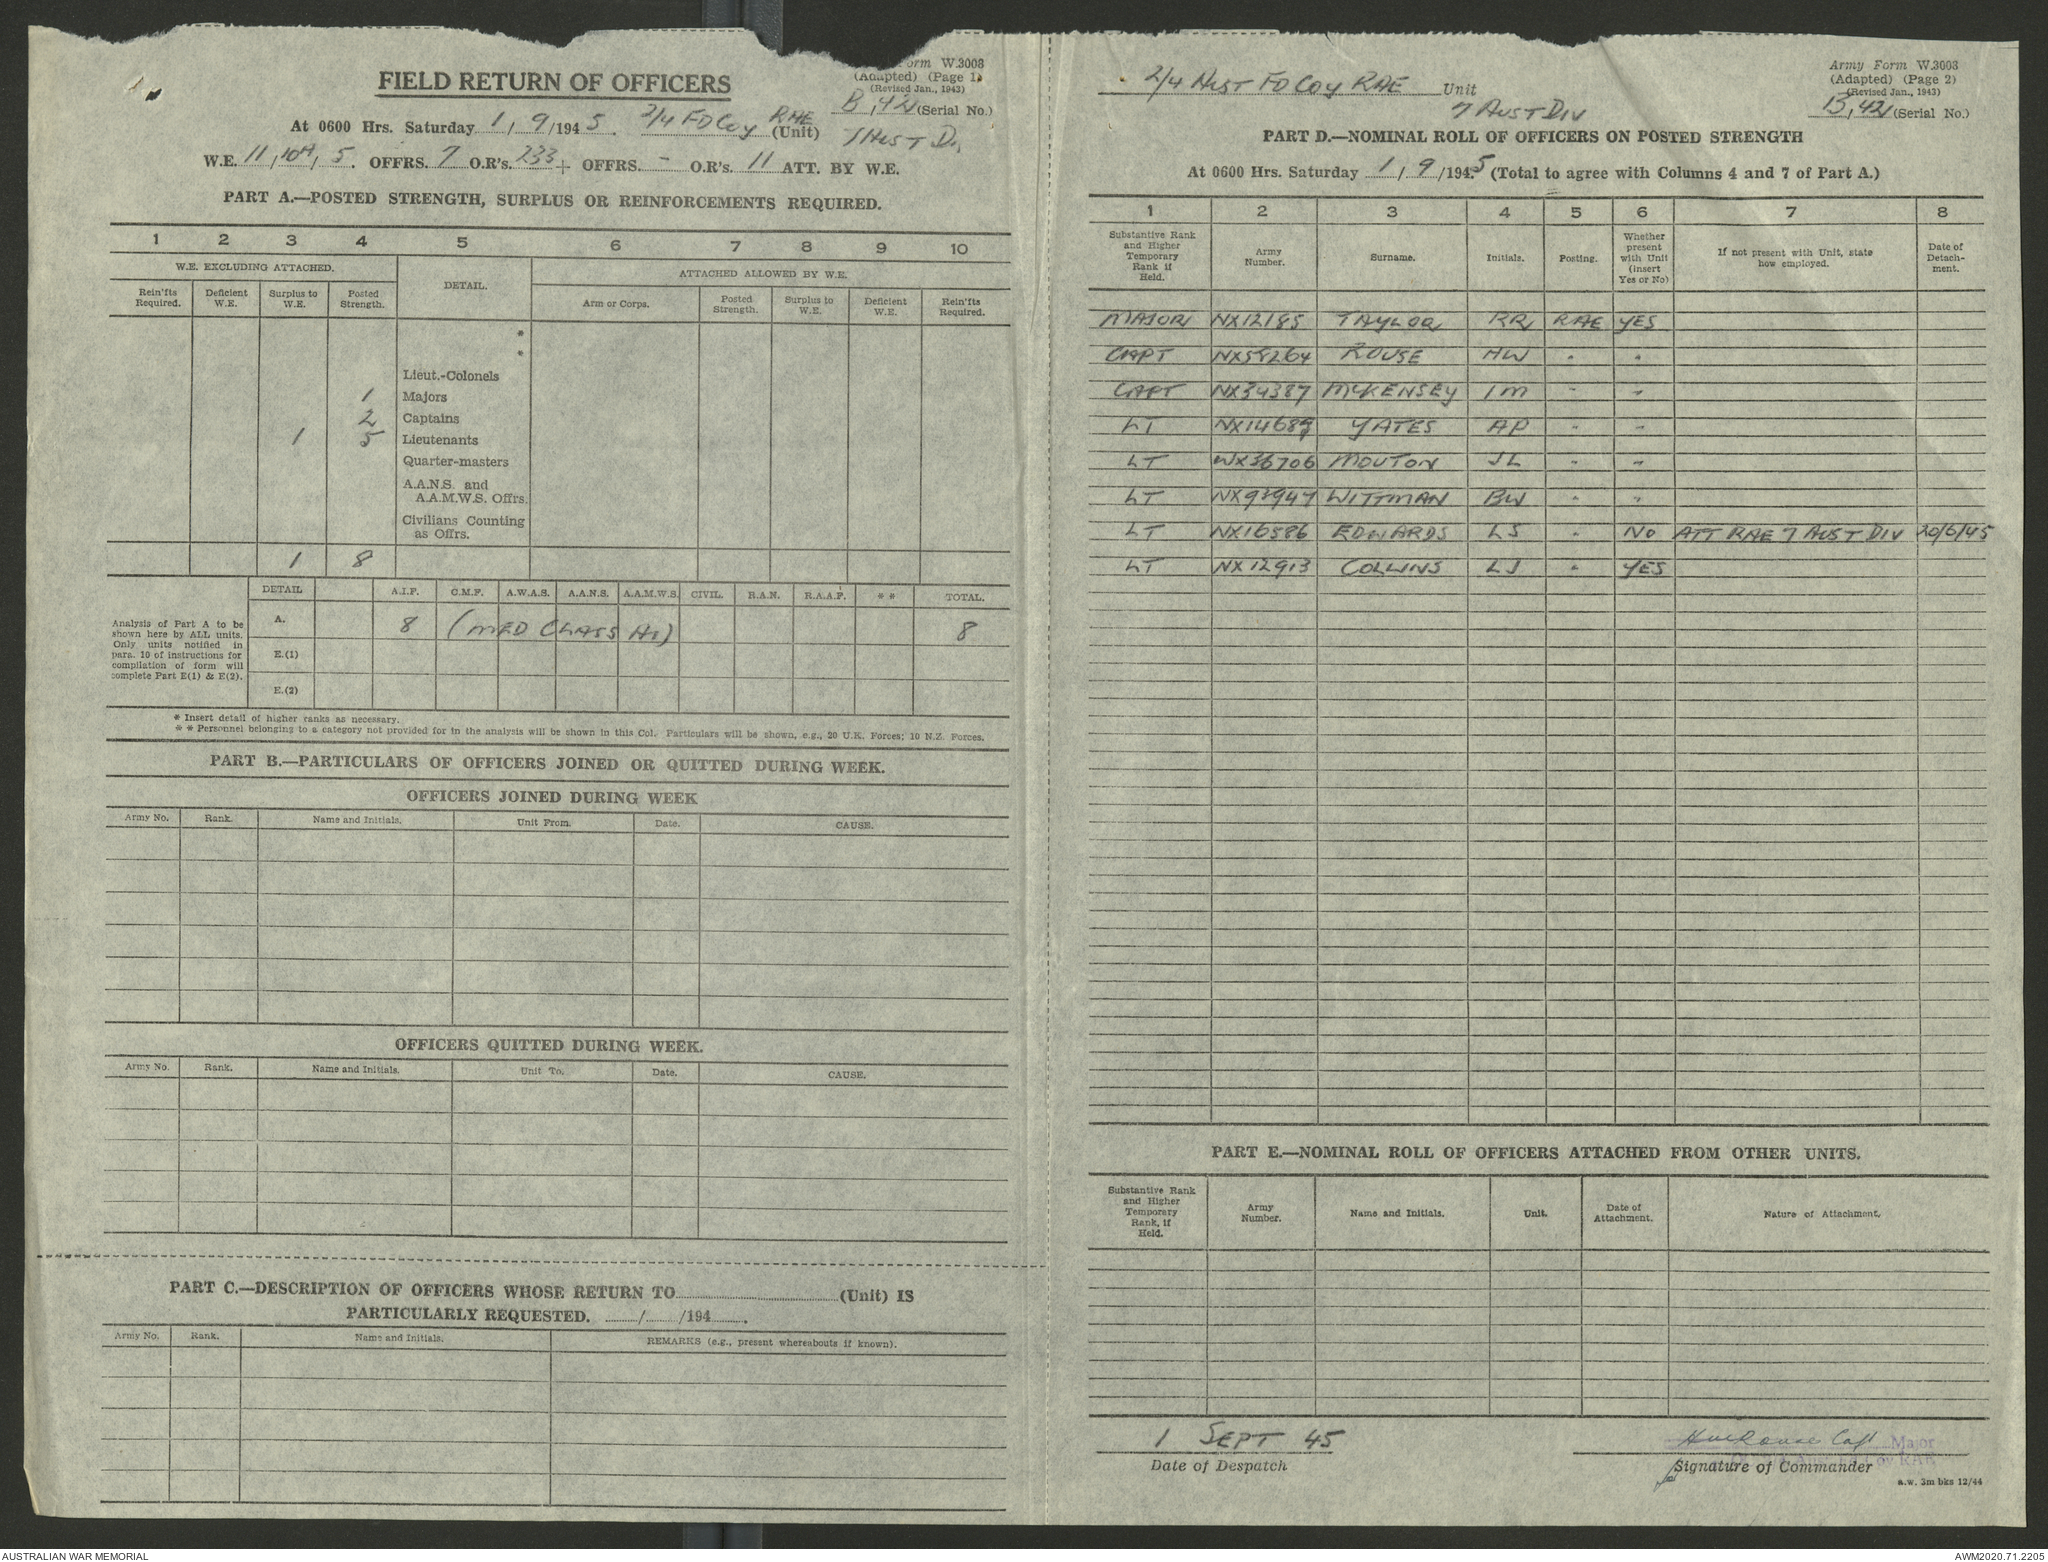 Form W.3008
(Adapted) (Page 1)
(Revised Jan., 1943)
FIELD RETURN OF OFFICERS
B, 42 (Serial No.)
At 0600 Hrs. Saturday 1, 9/1945. 2/4 FD Coy RAE (Unit) 7 Aust Di
W.E. 11, 104, 5. OFFRS. 7 O.R's. 233 + OFFRS. - O.R's. 11 ATT. BY W.E.
PART A.—POSTED STRENGTH, SURPLUS OR REINFORCEMENTS REQUIRED.
1 2 3 4 5 6 7 8 9 10
W.E. EXCLUDING ATTACHED. DETAIL. ATTACHED ALLOWED BY W.E.
Rein'fts Required. Deficient W.E. Surplus to W.E. Posted Strength. Arm or Corps. Posted Strength. Surplus to W.E. Deficient W.E. Rein'fts Required.
*
*
Lieut.-Colonels
1 Majors
2 Captains
1 5 Lieutenants
Quarter-masters
A.A.N.S. and
A.A.M.W.S. Offrs.
Civilians Counting
as Offrs.
1 8
DETAIL A.I.F. C.M.F. A.W.A.S. A.A.N.S. A.A.M.W.S. CIVIL. R.A.N. R.A.A.F. * * TOTAL.
Analysis of Part A to be
shown here by ALL units.
Only units notified in
para. 10 of instructions for
compilation of form will
complete Part E(1) & E(2).
A. 8 (MED CLASS A1) 8
E.(1)
E.(2)
* Insert detail of higher ranks as necessary.
* * Personnel belonging to a category not provided for in the analysis will be shown in this Col. Particulars will be shown, e.g., 20 U.K. Forces; 10 N.Z. Forces.
PART B.—PARTICULARS OF OFFICERS JOINED OR QUITTED DURING WEEK.
OFFICERS JOINED DURING WEEK
Army No. Rank. Name and Initials. Unit From. Date. CAUSE.
OFFICERS QUITTED DURING WEEK.
Army No. Rank. Name and Initials. Unit To. Date. CAUSE.
PART C.—DESCRIPTION OF OFFICERS WHOSE RETURN TO (Unit) IS
PARTICULARLY REQUESTED. / /194 .
Army No. Rank. Name and Initials. REMARKS (e.g., present whereabouts if known).
Army Form W.3008
(Adapted) (Page 2)
(Revised Jan., 1943)
2/4 Aust FD Coy RAE Unit
7 Aust Div
B, 42 (Serial No.)
PART D.—NOMINAL ROLL OF OFFICERS ON POSTED STRENGTH
At 0600 Hrs. Saturday 1, 9/1945 (Total to agree with Columns 4 and 7 of Part A.)
1 2 3 4 5 6 7 8
Substantive Rank and Higher Temporary Rank if Held. Army Number. Surname. Initials. Posting. Whether present with Unit (insert Yes or No) If not present with Unit, state how employed. Date of Detachment.
MAJOR NX12185 TAYLOR RR RAE YES
CAPT NX58264 ROUSE HW " "
CAPT NX34387 McKENSEY IM " "
LT NX14689 YATES AP " "
LT WX36706 MOUTON JL " "
LT NX93947 WITTMAN BW " "
LT NX16586 EDWARDS LS " NO ATT RAE 7 AUST DIV 20/6/45
LT NX12913 COLLINS LJ " YES
PART E.—NOMINAL ROLL OF OFFICERS ATTACHED FROM OTHER UNITS.
Substantive Rank and Higher Temporary Rank, if Held. Army Number. Name and Initials. Unit. Date of Attachment. Nature of Attachment.
1 SEPT 45
Date of Despatch
HW Rouse Capt Major
Signature of Commander
a.w. 3m bks 12/44
AUSTRALIAN WAR MEMORIAL
AWM2020.71.2205